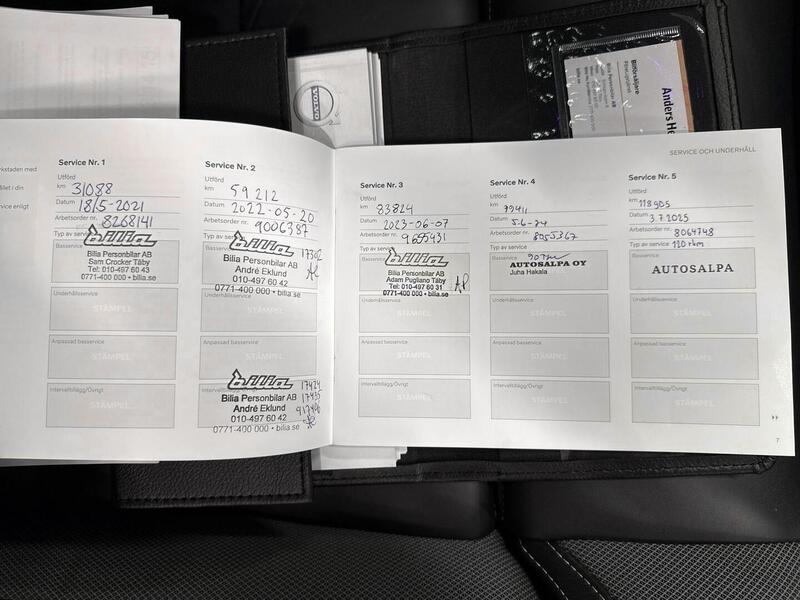 VOLVO
Bilförsäljare
Bilia Personbilar AB
bilia.se
SERVICE OCH UNDERHÅLL
rkstaden med
Service Nr. 1
Utförd
km 31088
Datum 18/5-2021
Arbetsorder nr. 8268141
Typ av
Basservice
bilia
Bilia Personbilar AB
Sam Crocker Täby
Tel: 010-497 60 43
0771-400 000 • bilia.se
Underhållsservice
STÄMPEL
Anpassad basservice
STÄMPEL
Intervalltillägg/Övrigt
STÄMPEL
Service Nr. 2
Utförd
km 59212
Datum 2022-05-20
Arbetsorder nr. 9006387
Typ av
bilia
Bilia Personbilar AB
André Eklund
010-497 60 42
0771-400 000 • bilia.se
Underhållsservice
STÄMPEL
Anpassad basservice
STÄMPEL
bilia
Bilia Personbilar AB
André Eklund
010-497 60 42
0771-400 000 • bilia.se
Service Nr. 3
Utförd
km 83824
Datum 2023-06-07
Arbetsorder nr.
Typ av
bilia
Bilia Personbilar AB
Adam Pugliano Täby
Tel: 010-497 60 31
0771-400 000 • bilia.se
AP
Underhållsservice
STÄMPEL
Anpassad basservice
STÄMPEL
Intervalltillägg/Övrigt
STÄMPEL
Service Nr. 4
Utförd
km
Datum 5-6-24
Arbetsorder nr.
Typ av service
Basservice
AUTOSALPA OY
Juha Hakala
Underhållsservice
STÄMPEL
Anpassad basservice
STÄMPEL
Intervalltillägg/Övrigt
STÄMPEL
Service Nr. 5
Utförd
km 118905
Datum 3.7.2025
Arbetsorder nr. 8064748
Typ av service 120 tkm
Basservice
AUTOSALPA
Underhållsservice
STÄMPEL
Anpassad basservice
STÄMPEL
Intervalltillägg/Övrigt
STÄMPEL
7